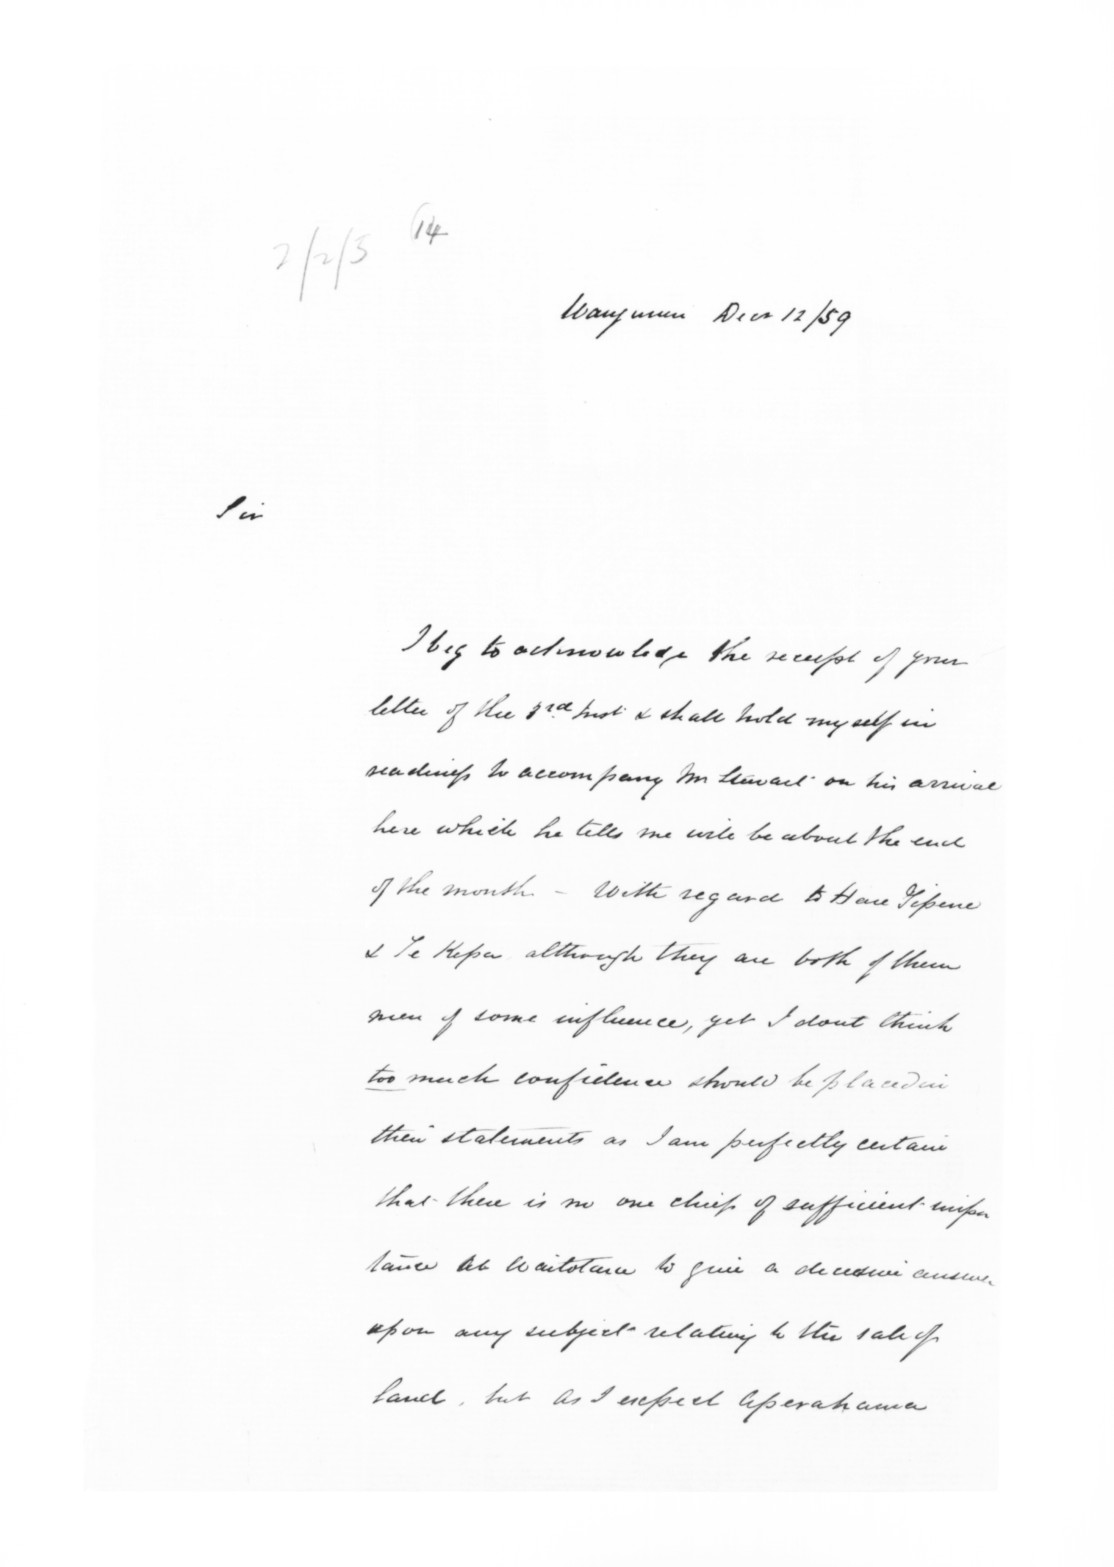 2/2/5 (14
Wanganui Decr 12/59
Sir
I beg to acknowledge the receipt of your
letter of the 3rd Inst & shall hold myself in
readiness to accompany Mr Stewart on his arrival
here which he tells me will be about the end
of the month - With regard to Hare Tipene
& Te Kepa although they are both of them
men of some influence, yet I dont think
too much confidence should be placed in
their statements as I am perfectly certain
that there is no one chief of sufficient impor
tance at Waitotara to give a decisive answer
upon any subject relating to the sale of
land, but as I expect Aperahama